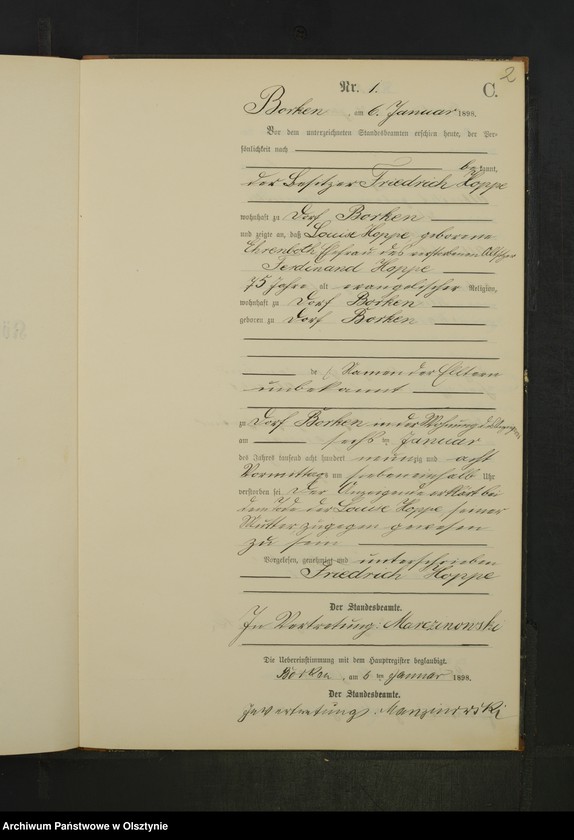 2
Nr. 1. C.
Borken, am 6. Januar 1898.
Vor dem unterzeichneten Standesbeamten erschien heute, der Per-
sönlichkeit nach
bekannt,
der Besitzer Friedrich Hoppe
wohnhaft zu Dorf Borken
und zeigte an, daß Louise Hoppe geborene
Ehrenboth Ehefrau des verstorbenen Altsitzer
Ferdinand Hoppe
75 Jahre alt evangelischer Religion,
wohnhaft zu Dorf Borken
geboren zu Dorf Borken
de Namen der Eltern
unbekannt
zu Dorf Borken in der Wohnung des
am sechs ten Januar
des Jahres tausend acht hundert neunzig und acht
Vormittags um sieben einhalb Uhr
verstorben sei. Der Anzeigende erklärt bei
dem Tode der Louise Hoppe seiner
Mutter zugegen gewesen
zu sein
Vorgelesen, genehmigt und unterschrieben
Friedrich Hoppe
Der Standesbeamte.
In Vertretung: Marczinowski
Die Uebereinstimmung mit dem Hauptregister beglaubigt.
Borken, am 6 ten Januar 1898.
Der Standesbeamte.
In Vertretung: Marczinowski
Archiwum Państwowe w Olsztynie